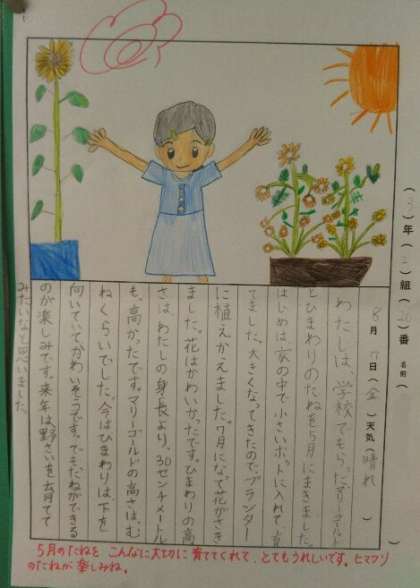 (3)年( )組(20)番 名前( )
8月 日(金)天気(晴れ)
わたしは、学校でもらったマリーゴールド
とひまわりのたねを5月にまきました。
はじめは家の中で小さいポットに入れて、育
てました。大きくなってきたので、プランター
に植えかえました。7月になって花がさき
ました。花はかわいかったです。ひまわりの高
さは、わたしの身長より、30センチメートル
も、高かったです。マリーゴールドの高さは、む
ねくらいでした。今はひまわりは、下を
向いていてかわいそうです。でもたねができる
のが楽しみです。来年は、野さいを育てて
みたいなと思いました。
5月のたねを こんなに大切に 育ててくれて、とてもうれしいです。ヒマワリ
のたねが 楽しみね。